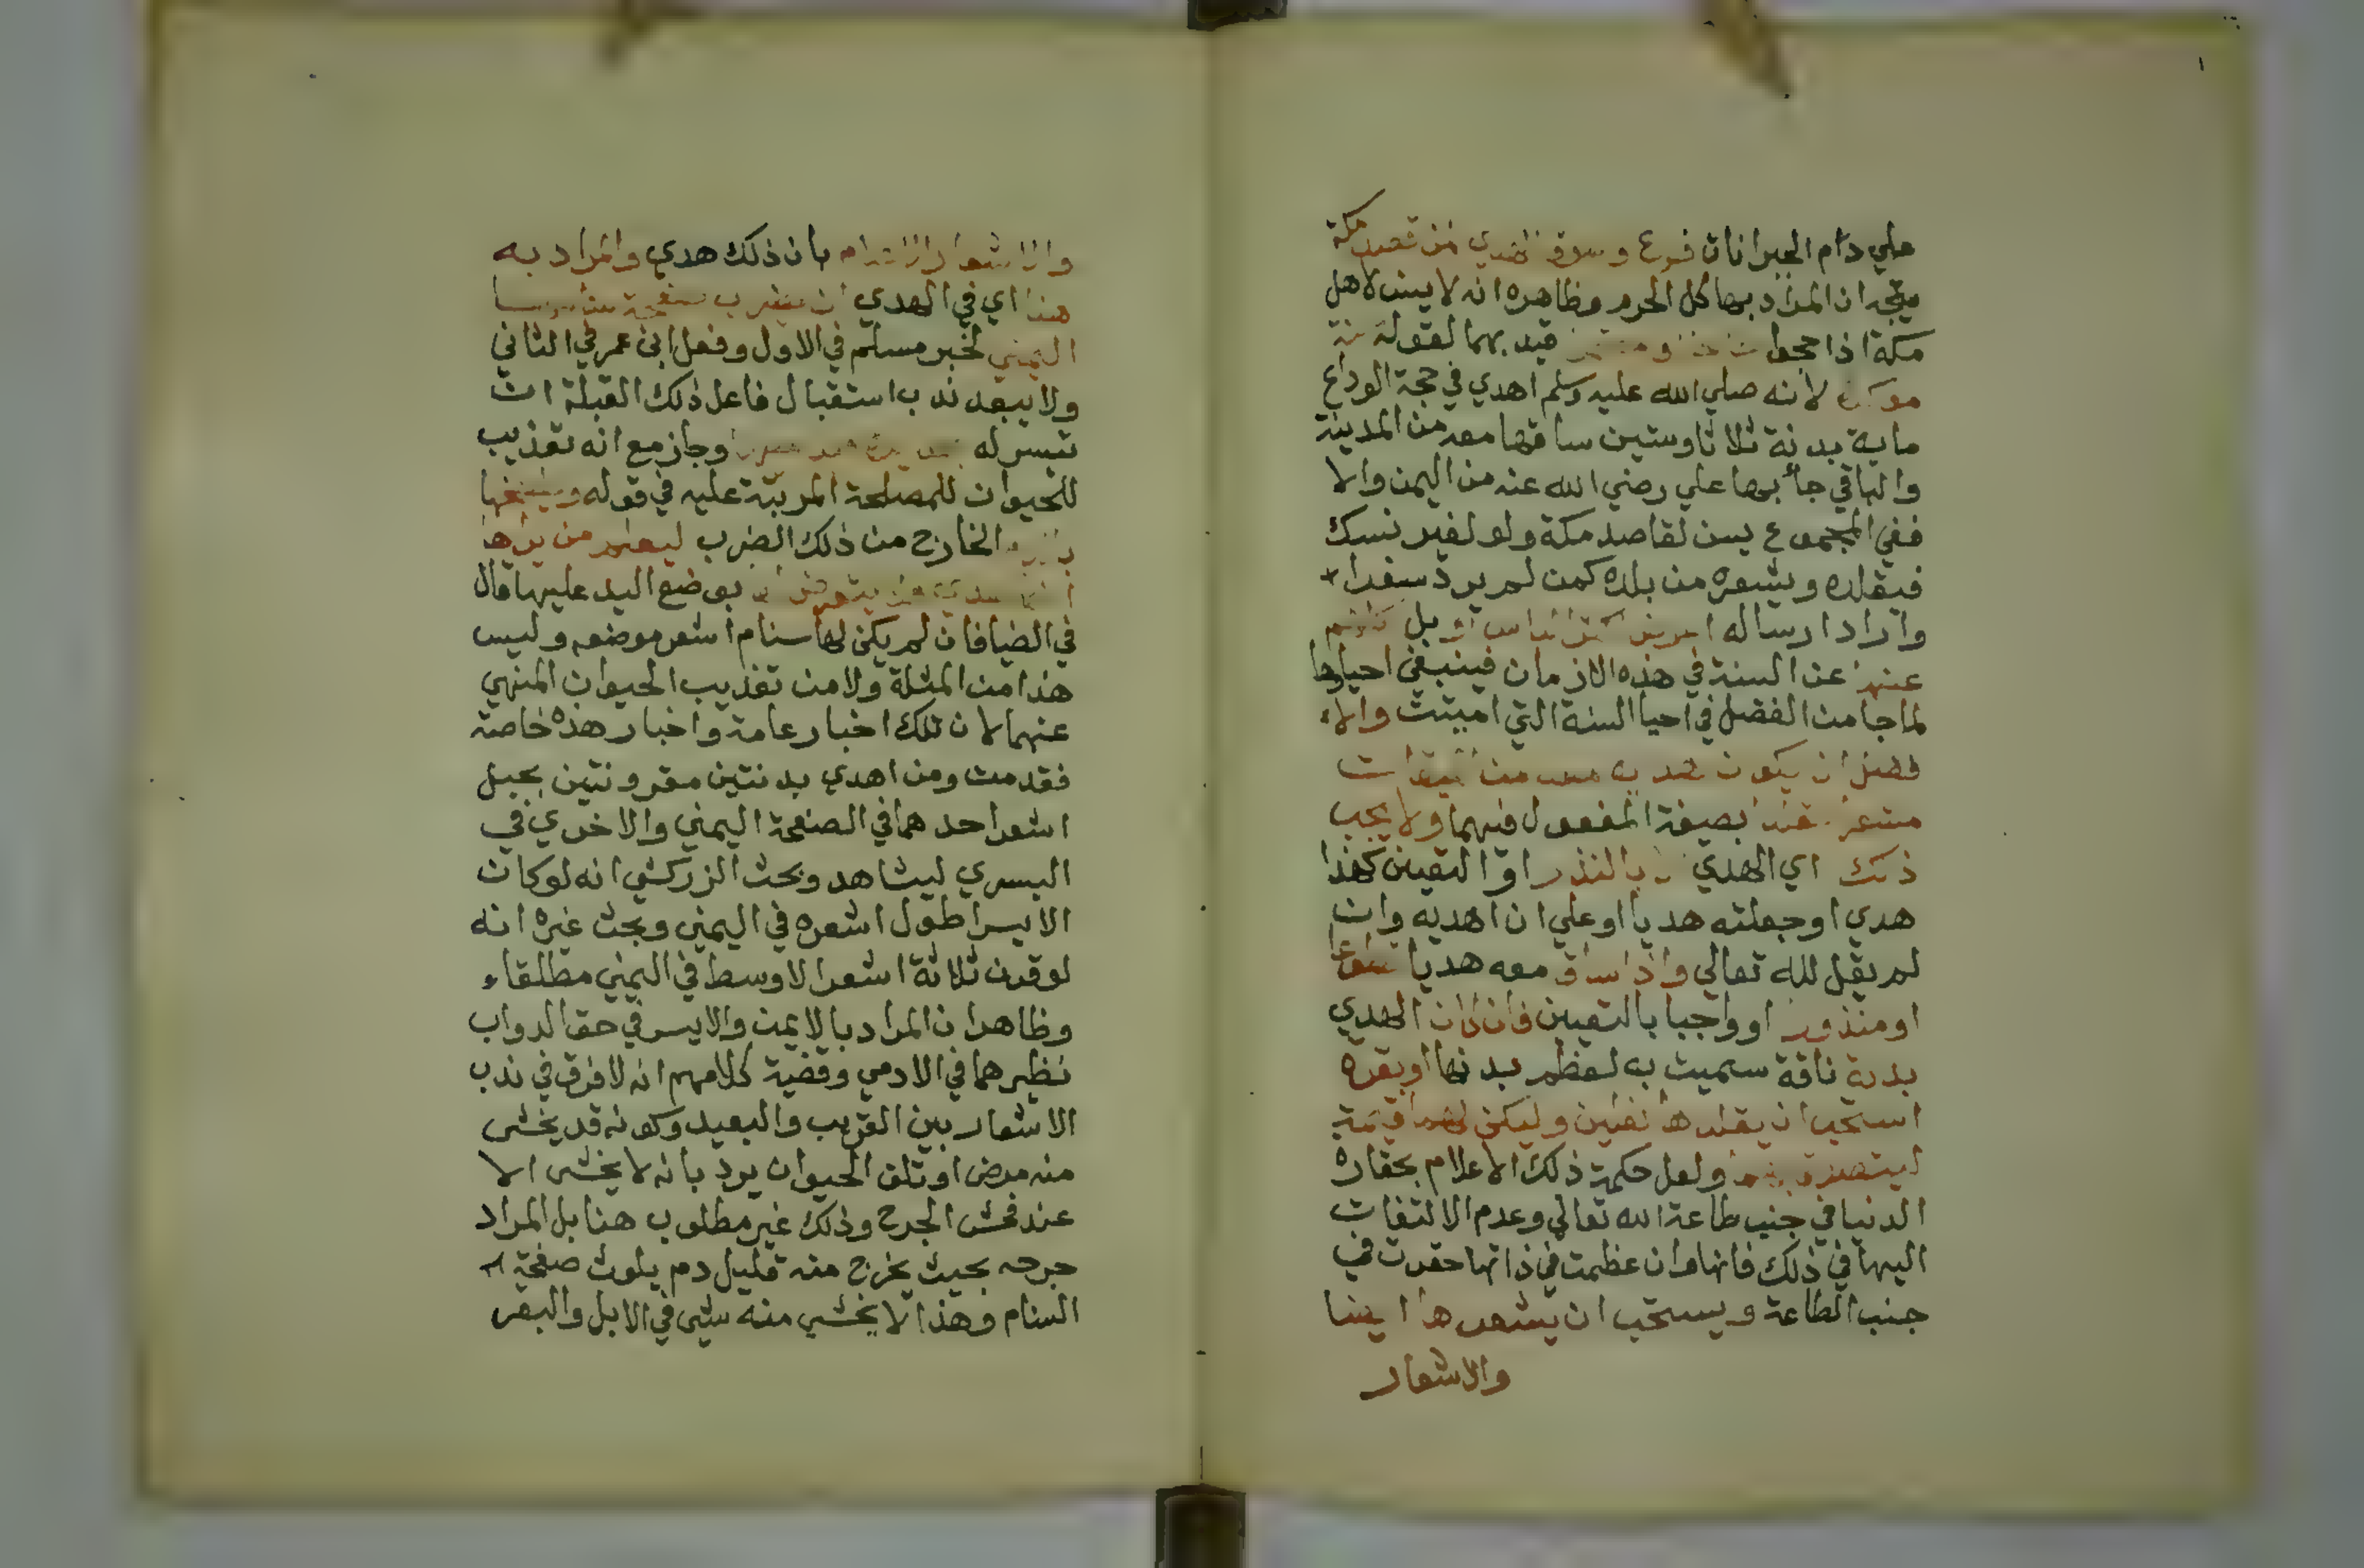 علي دام الجبرانات فرع وسوق الهدي لمن قصد مكة
يتجه ان المراد بها كل الحرم وظاهره انه لا يسن لاهل
مكة اذا حجوا قيد بهما لقوله سنة
موكدة لانه صلي الله عليه وسلم اهدي في حجة الوداع
ماية بدنة ثلاثا وستين ساقها معه من المدينة
والباقي جا بها علي رضي الله عنه من اليمن والا
ففي المجموع يسن لقاصد مكة ولو لغير نسك
فيقلده ويشعره من بلده كمن لم يرد سفرا
واراد ارساله اعرض اكثر الناس او بل كلهم
عنها عن السنة في هذه الازمان فينبغي احياوها
لما جا من الفضل في احيا السنة التي اميتت والا
فضل ان يكون هديه معه من الميقات
مشعرا مقلدا بصيغة المفعول فيهما ولا يجب
ذلك اي الهدي الا بالنذر او التعيين كهذا
هدي او جعلته هديا او علي ان اهديه وان
لم يقل لله تعالي واذا ساق معه هديا تطوعا
او منذورا او واجبا بالتعيين فان كان الهدي
بدنة ناقة سميت به لعظم بدنها او بقرة
استحب ان يقلدها نعلين وليكن لهما قيمة
ليتصدق بهما ولعل حكمة ذلك الاعلام بحقارة
الدنيا في جنب طاعة الله تعالي وعدم الالتفات
اليها في ذلك فانها وان عظمت في ذاتها حقرت في
جنب الطاعة ويستحب ان يشعرها ايضا
والاشعار
والاشعار الاعلام بان ذلك هدي والمراد به
هنا اي في الهدي ان يضرب صفحة سنامها
اليمني لخبر مسلم في الاول وفعل ابن عمر في الثاني
ولا يبعد ندب استقبال فاعل ذلك القبلة ان
تيسر له وجاز مع انه تعذيب
للحيوان للمصلحة المرتبة عليه في قوله ويلطخها
بالدم الخارج من ذلك الضرب ليعلم من يراها
انها هدي فلا يتعرض لها بوضع اليد عليها قال
في الضيا فان لم يكن لها سنام اشعر موضعه وليس
هذا من المثلة ولا من تعذيب الحيوان المنهي
عنهما لان تلك اخبار عامة واخبار هذه خاصة
فقدمت ومن اهدي بدنتين مقرونتين بحبل
اشعر احدهما في الصفحة اليمني والاخري في
اليسري ليشاهد وبحث الزركشي انه لو كان
الايسر اطول اشعره في اليمني وبحث غيره انه
لو قرن ثلاثة اشعر الاوسط في اليمني مطلقا
وظاهر ان المراد بالايمن والايسر في حق الدواب
نظيرهما في الادمي وقضية كلامهم انه لا فرق في ندب
الاشعار بين القريب والبعيد وكونه قد يخشي
منه مرض او تلف الحيوان يرد بانه لا يخشي الا
عند فحش الجرح وذلك غير مطلوب هنا بل المراد
جرحه بحيث يخرج منه قليل دم يلوث صفحة
السنام وهذا لا يخشي منه شي في الابل والبقر